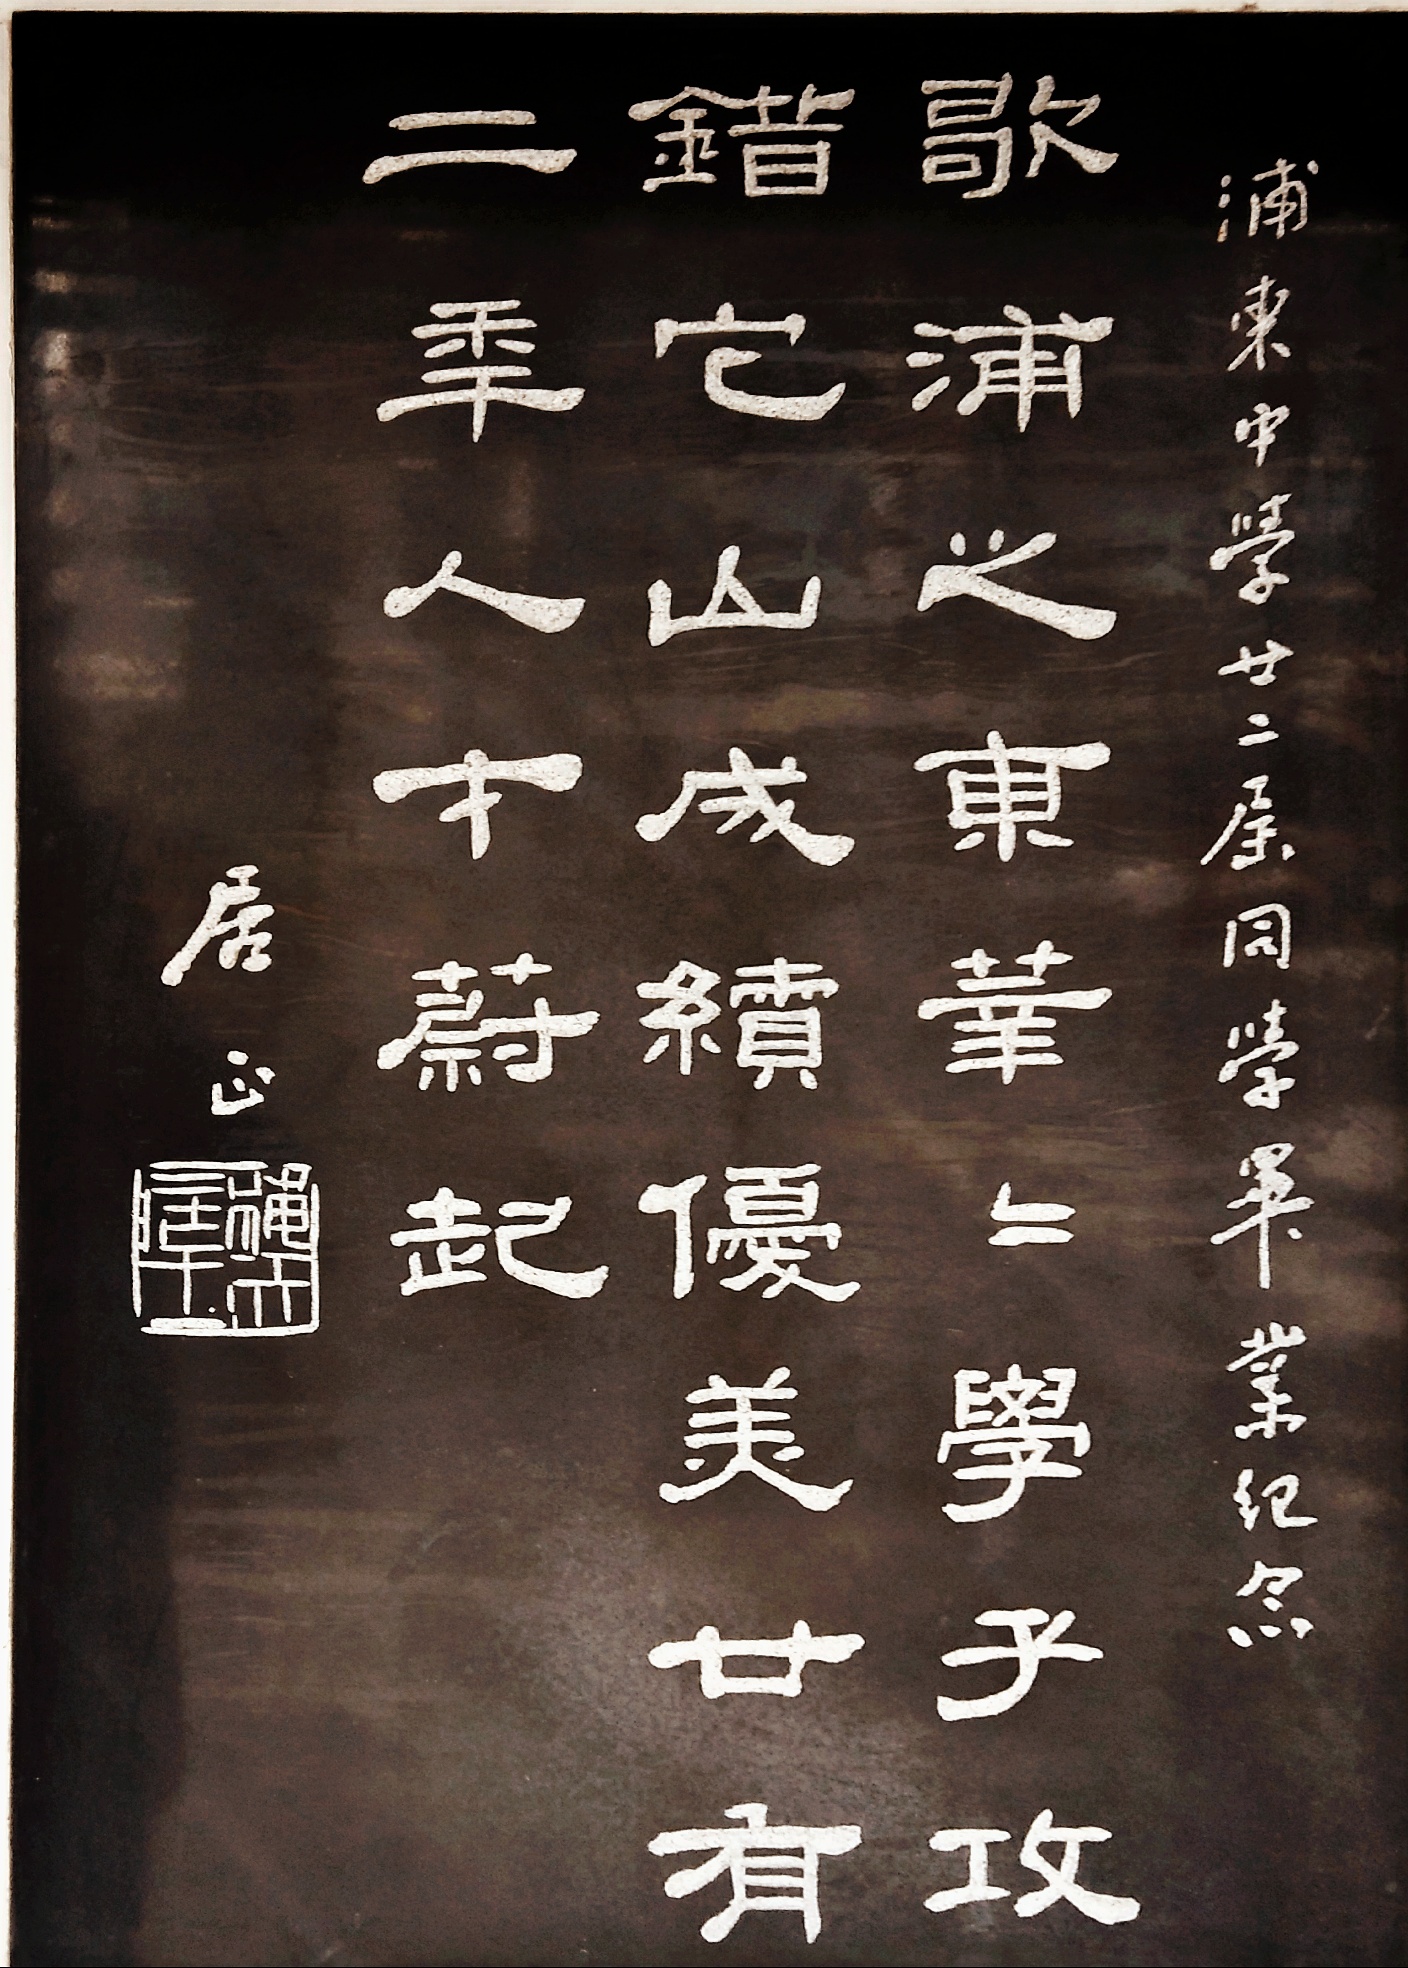 浦東中學廿二屆同學畢業紀念
歌浦之東華〻學子攻
錯它山成績優美廿有
二年人才蔚起
居正